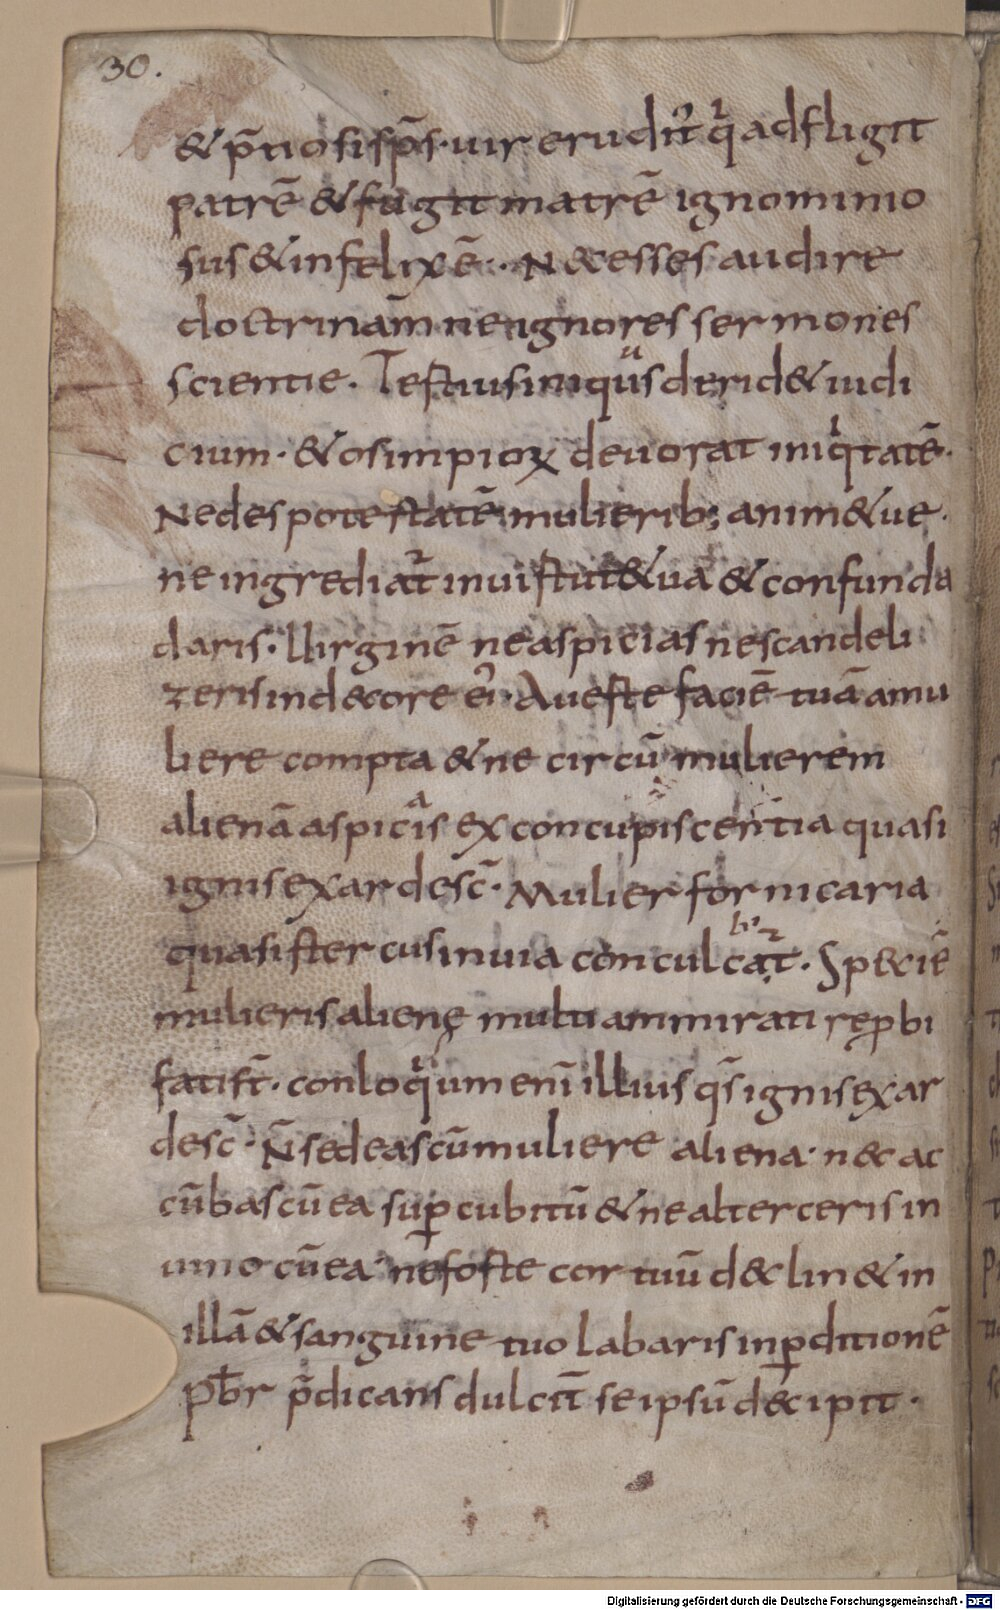 30.
& p̄tiosi sp̄s · uir erudit᷒ q̄ adfligit
patrē & fugit matrē ignominio
sus & infelix ē · Nec esses audire
doctrinam̄ ne ignores sermones
scientie · Testius iniquus derid& iudi
cium · & os impioꝝ deuorat iniqtatē ·
Ne des potestatē mulierib; anim& ue ·
ne ingrediat᷑ in uistut& ua & confunda
daris · Uirginē ne aspicias ne scandeli
zeris in decore ei᷒ · Aueste faciē tuā a mu
liere compta & ne circū mulierem
alienā aspicias ex concupiscentia quasi
ignis exardesc̄ · Mulier fornicaria
quasi stercus in uia conculcabit᷑ · Speciē
mulieris alienę multi ammirati reꝓbi
fati st̄ · conloqium eni̅ illius qs̄ ignis exar
desc̄ · N̄ sedeas cū muliere aliena · nec ac
cūbas cū ea suꝑ cubitū & ne alterceris in
uino cū ea · ne foste cor tuū declin& in
illā & sanguine tuo labaris in ꝑditionē
Pbr̄ p̄dicans dulcit̄ se ipsū decipit ·
Digitalisierung gefördert durch die Deutsche Forschungsgemeinschaft - DFG